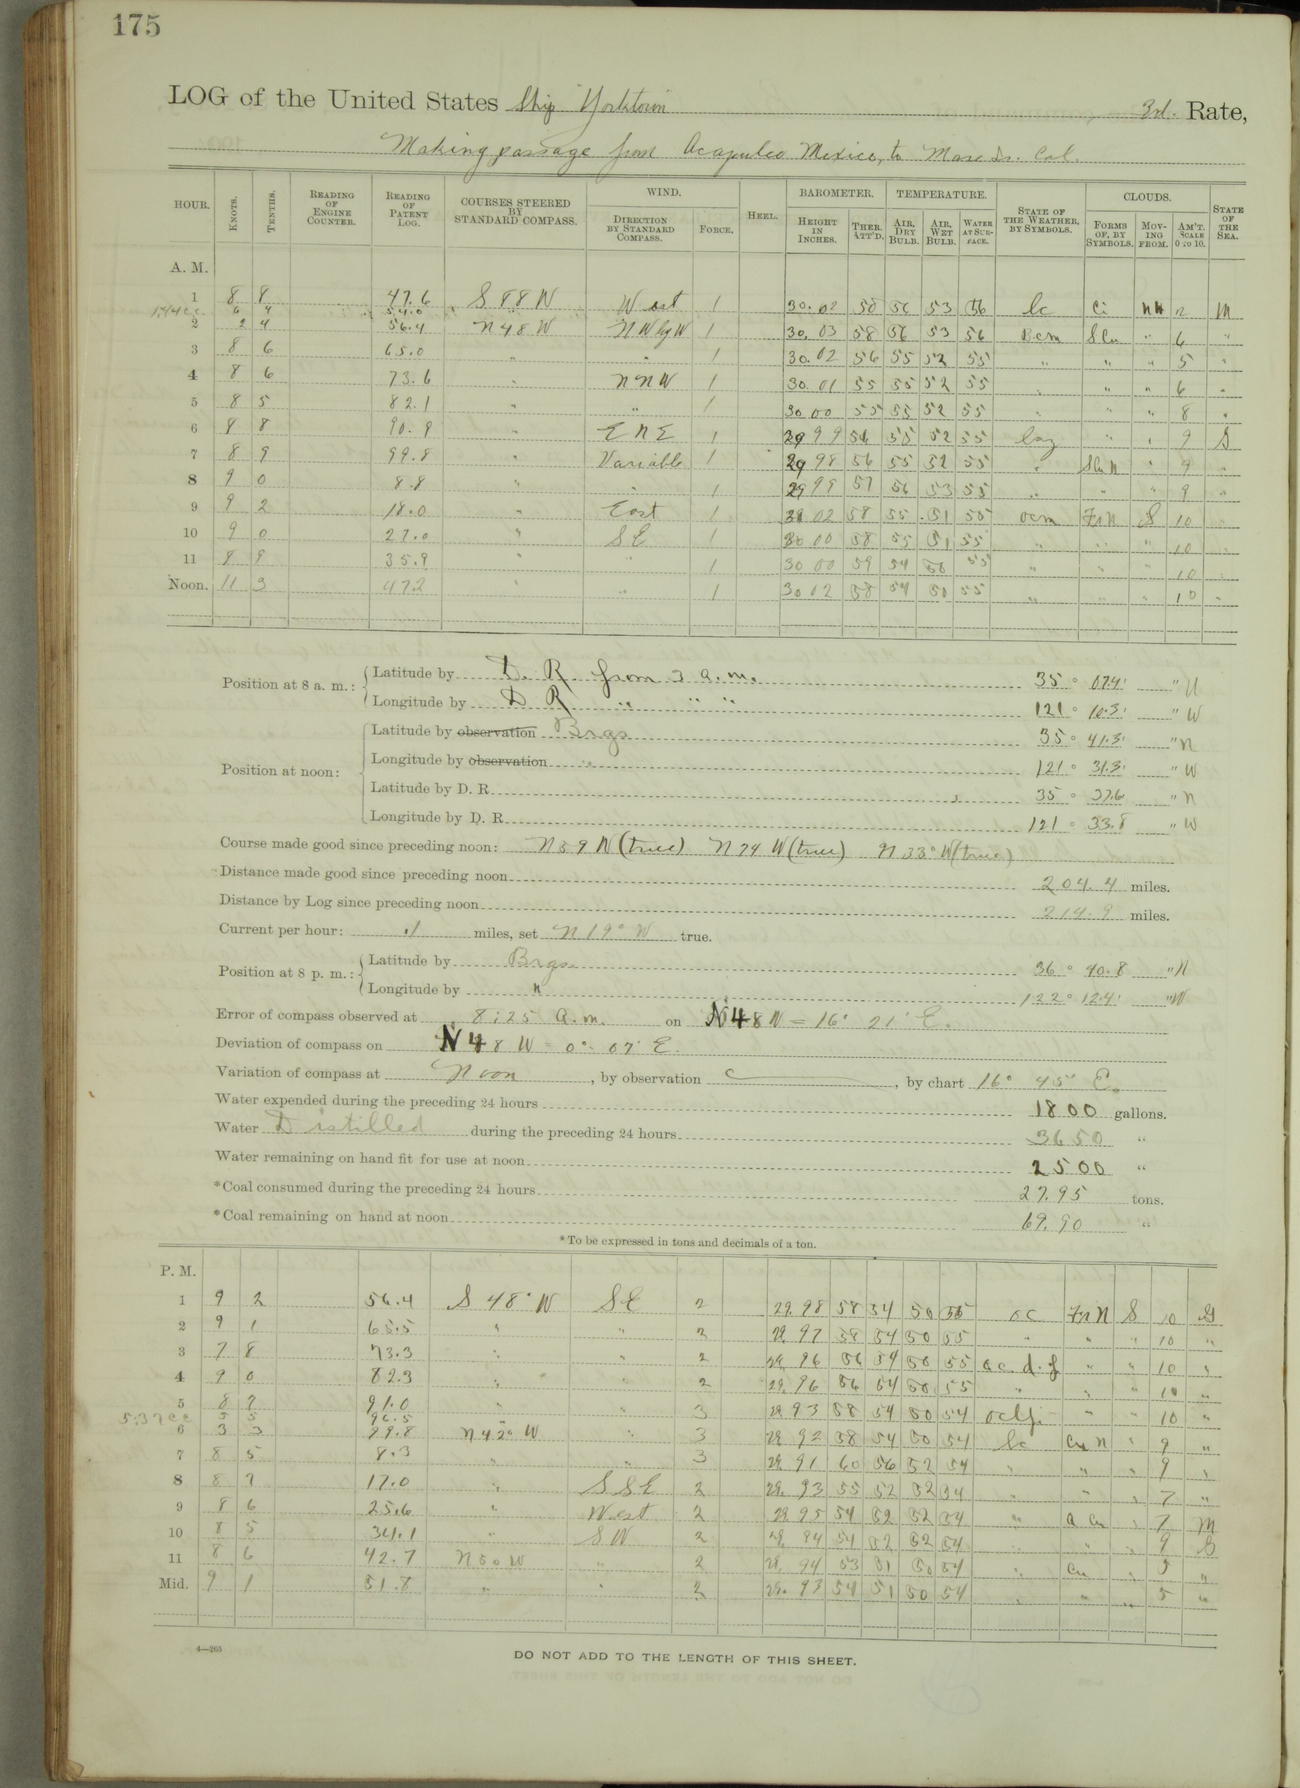 175
LOG of the United States Ship Yorktown 3rd. Rate,
Making passage from Acapulco Mexico, to Mare Is. Cal.
HOUR. KNOTS. TENTHS. READING OF ENGINE COUNTER. READING OF PATENT LOG. COURSES STEERED BY STANDARD COMPASS. WIND. DIRECTION BY STANDARD COMPASS. FORCE. HEEL. BAROMETER. HEIGHT IN INCHES. THER. ATT'D. TEMPERATURE. AIR, DRY BULB. AIR, WET BULB. WATER AT SURFACE. STATE OF THE WEATHER, BY SYMBOLS. CLOUDS. FORMS OF, BY SYMBOLS. MOVING FROM. AM'T. SCALE 0 TO 10. STATE OF THE SEA.
A. M.
1 8 8 47.6 S 88 W West 1 30.02 58 56 53 56 bc Ci 2 M
6 4 54.0
2 2 4 56.4 N 48 W NW by W 1 30.03 58 56 53 56 Bcm SCu " 6 "
3 8 6 65.0 " " 1 30.02 56 55 52 55 " " " 5 "
4 8 6 73.6 " NNW 1 30.01 55 55 52 55 " " " 6 "
5 8 5 82.1 " " 1 30 00 55 55 52 55 " " " 8 "
6 8 8 90.9 " ENE 1 29 99 56 55 52 55 " " 9 S
7 8 9 99.8 " Variable 1 29 98 56 55 52 55 " SCu N " 9 "
8 9 0 8.8 " " 1 29 99 57 56 53 55 " " " 9 "
9 9 2 18.0 " East 1 30 02 58 55 51 55 ocm FrN S 10
10 9 0 27.0 " SE 1 30 00 58 55 51 55 " " " 10
11 8 9 35.9 " 1 30 00 59 54 50 55 " " " 10
Noon. 11 3 47.2 " " 1 30 02 58 54 50 55 " " " 10 "
Position at 8 a. m.: Latitude by D. R. from 3 a.m. 35 ° 07.4' " N
Longitude by D R " " " 121 ° 10.3' " W
Position at noon: Latitude by observation Brgs 35 ° 41.3' " N
Longitude by observation " 121 ° 31.3' " W
Latitude by D. R. 35 ° 37.6 " N
Longitude by D. R. 121 ° 33.8 " W
Course made good since preceding noon: N 59 W (true) N 74 W (true) N 33° W (true)
Distance made good since preceding noon 204.4 miles.
Distance by Log since preceding noon 214.9 miles.
Current per hour: .1 miles, set N 19° W true.
Position at 8 p. m.: Latitude by Brgs. 36 ° 40.8 " N
Longitude by " 122 ° 12.4' " W
Error of compass observed at 8:25 a.m. on N 48 W = 16° 21' E.
Deviation of compass on N 48 W = 0° 07' E.
Variation of compass at Noon, by observation, by chart 16° 45' E.
Water expended during the preceding 24 hours 1800 gallons.
Water Distilled during the preceding 24 hours 3650 "
Water remaining on hand fit for use at noon 2500 "
*Coal consumed during the preceding 24 hours 27.95 tons.
*Coal remaining on hand at noon 69.90 "
*To be expressed in tons and decimals of a ton.
P. M.
1 9 2 56.4 S 48° W SE 2 29.98 58 54 50 55 oc FrN S 10 S
2 9 1 65.5 " " 2 29.97 58 54 50 55 " " " 10 "
3 7 8 73.3 " " 2 29.96 56 54 50 55 oc.d.f " " 10 "
4 9 0 82.3 " " 2 29.96 56 54 50 55 " " " 10 "
5 8 7 91.0 " " 3 29.93 58 54 50 54 " " 10 "
5:37 5 5 96.5 "
6 3 3 99.8 N 42° W " 3 29.92 58 54 50 54 bc Cu N " 9 "
7 8 5 8.3 " " 3 29.91 60 56 52 54 " " " 9 "
8 8 7 17.0 " SSE 2 29.93 55 52 52 54 " " " 7 "
9 8 6 25.6 " West 2 29.95 54 52 52 54 " a Cu " 7 M
10 8 5 34.1 " SW 2 29.94 54 52 52 54 " " " 9 S
11 8 6 42.7 N 50 W " 2 29.94 53 51 50 54 " Cu " 5 "
Mid. 9 1 51.8 " " 2 29.93 54 51 50 54 " " " 5 "
4—263
DO NOT ADD TO THE LENGTH OF THIS SHEET.